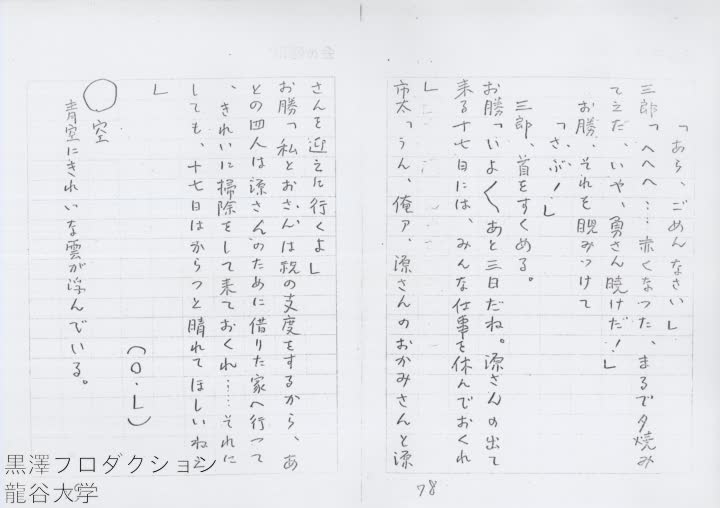 「あら、ごめんなさい」
三郎「へへへ…赤くなつた、まるで夕焼み
て之だ、いや、勇さん暁けだ！」
お勝、それを睨みつけて
「さぶ！」
三郎、首をすくめる。
お勝「いよ〱あと三日だね。源さんの出て
来る十七日には、みんな仕事を休んでおくれ
」
市太「うん、俺ァ、源さんのおかみさんと源
78
さんを迎えに行くよ」
お勝「私とおさんは祝の支度をするから、あ
との四人は源さんのために借りた家へ行つて
、きれいに掃除をして来ておくれ……それに
しても、十七日はからつと晴れてほしいねえ
」
（O・L）
○空
青空にきれいな雲が浮んでいる。
黒澤プロダクション
龍谷大学